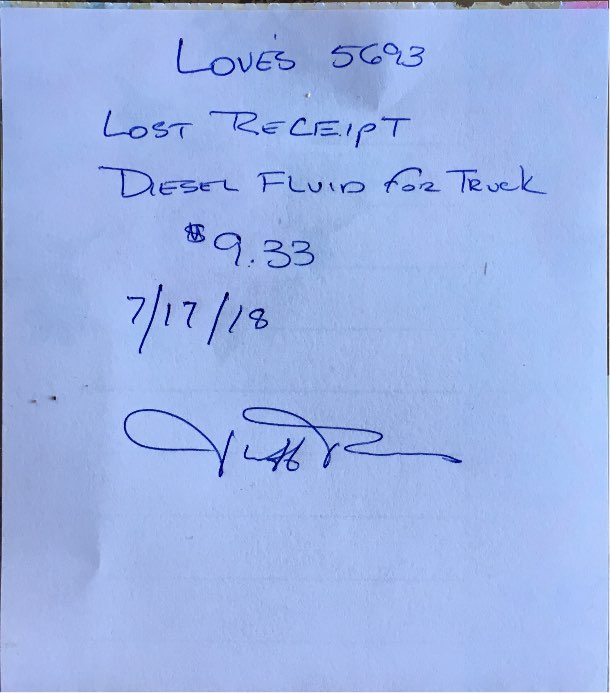 LOVE'S 5693
LOST RECEIPT
DIESEL FLUID FOR TRUCK
$9.33
7/17/18